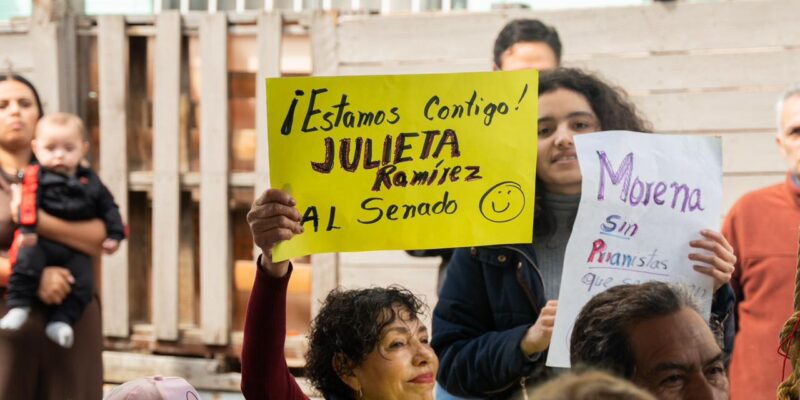 ¡Estamos Contigo!
JULIETA
Ramírez
AL Senado
Morena
Sin
Prianistas
que